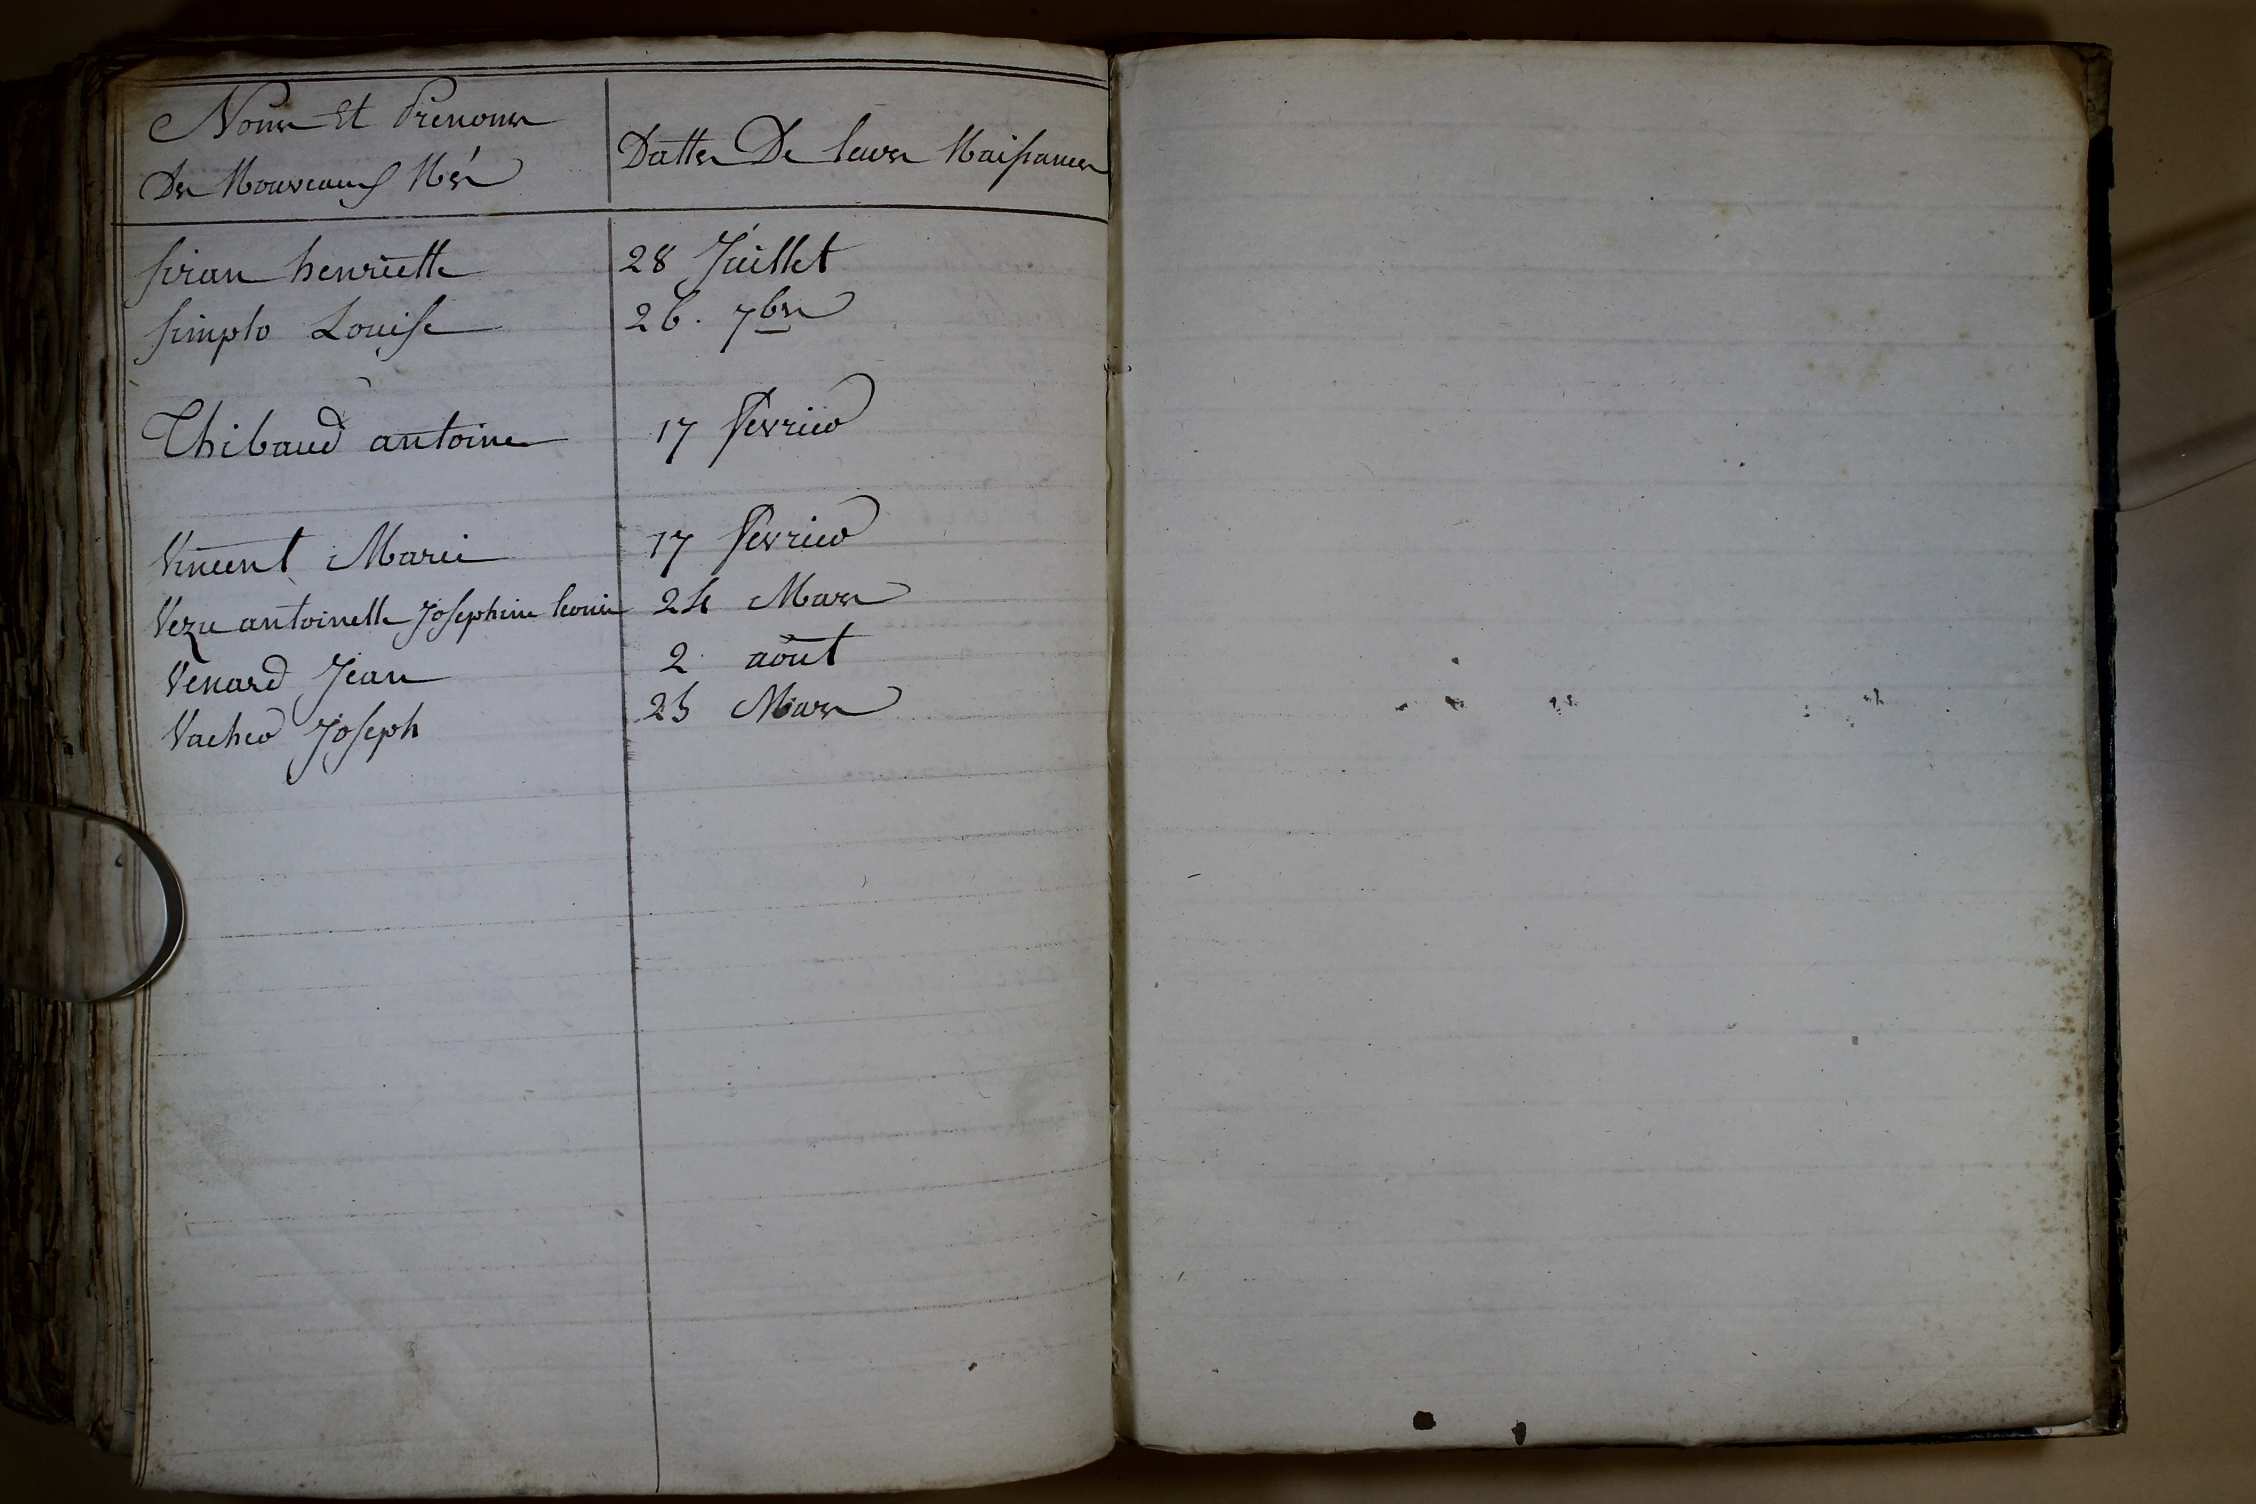 Noms Et Prénoms
Des Nouveaux Nés
Dattes De leurs Naissances
siran henriette 28 Juillet
simplo Louise 26. 7bre
Thibaud antoine 17 fevrier
Vincent Marie 17 fevrier
Vezu antoinette Josephine leonie 24 Mars
Venard Jean 2 août
Vacher Joseph 25 Mars